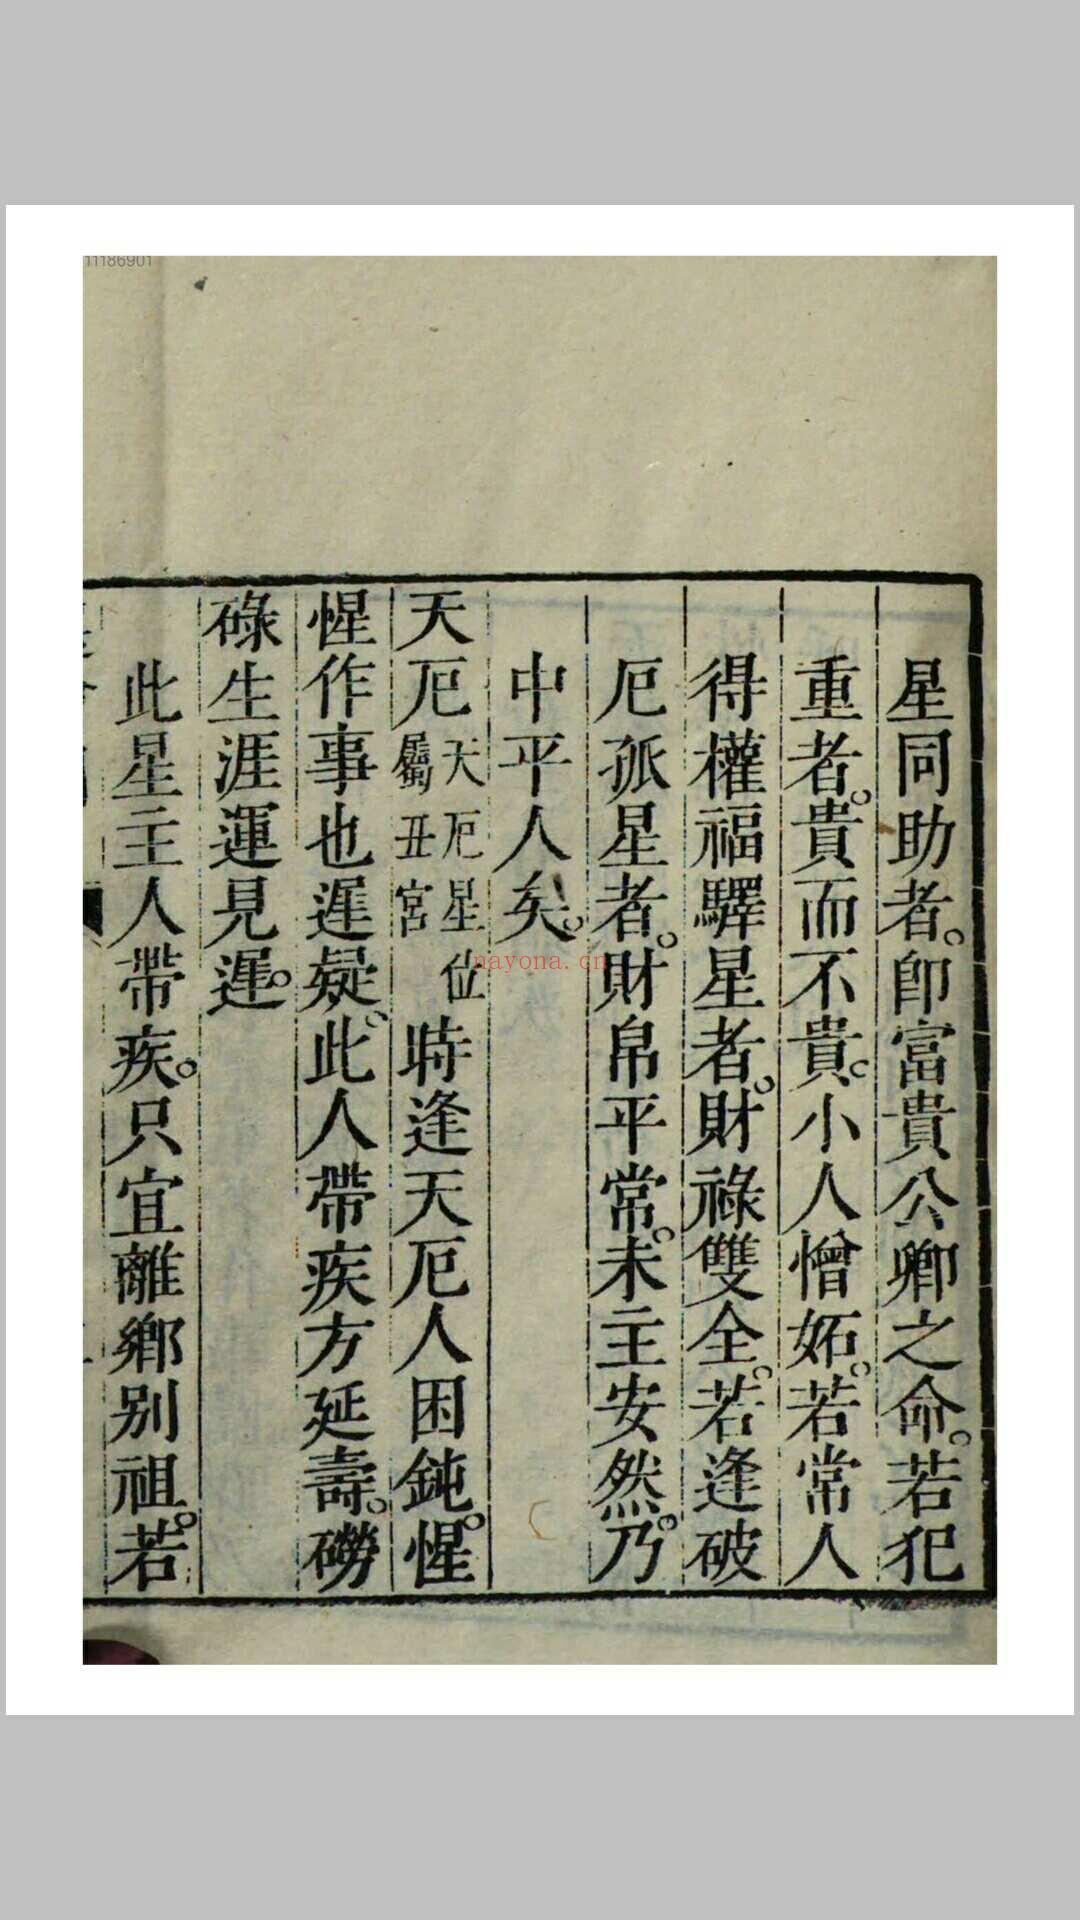 11186901
星同助者。即富貴公卿之命。若犯
重者。貴而不貴。小人憎妬。若常人
得權福驛星者。財祿雙全。若逢破
厄孤星者。財帛平常。未主安然。乃
中平人矣。
天厄天厄星位屬丑宮時逢天厄人困鈍。惺
惺作事也遲疑。此人帶疾方延壽。磱
碌生涯運見遲。
此星主人帶疾。只宜離鄉別祖。若
nayona.cn